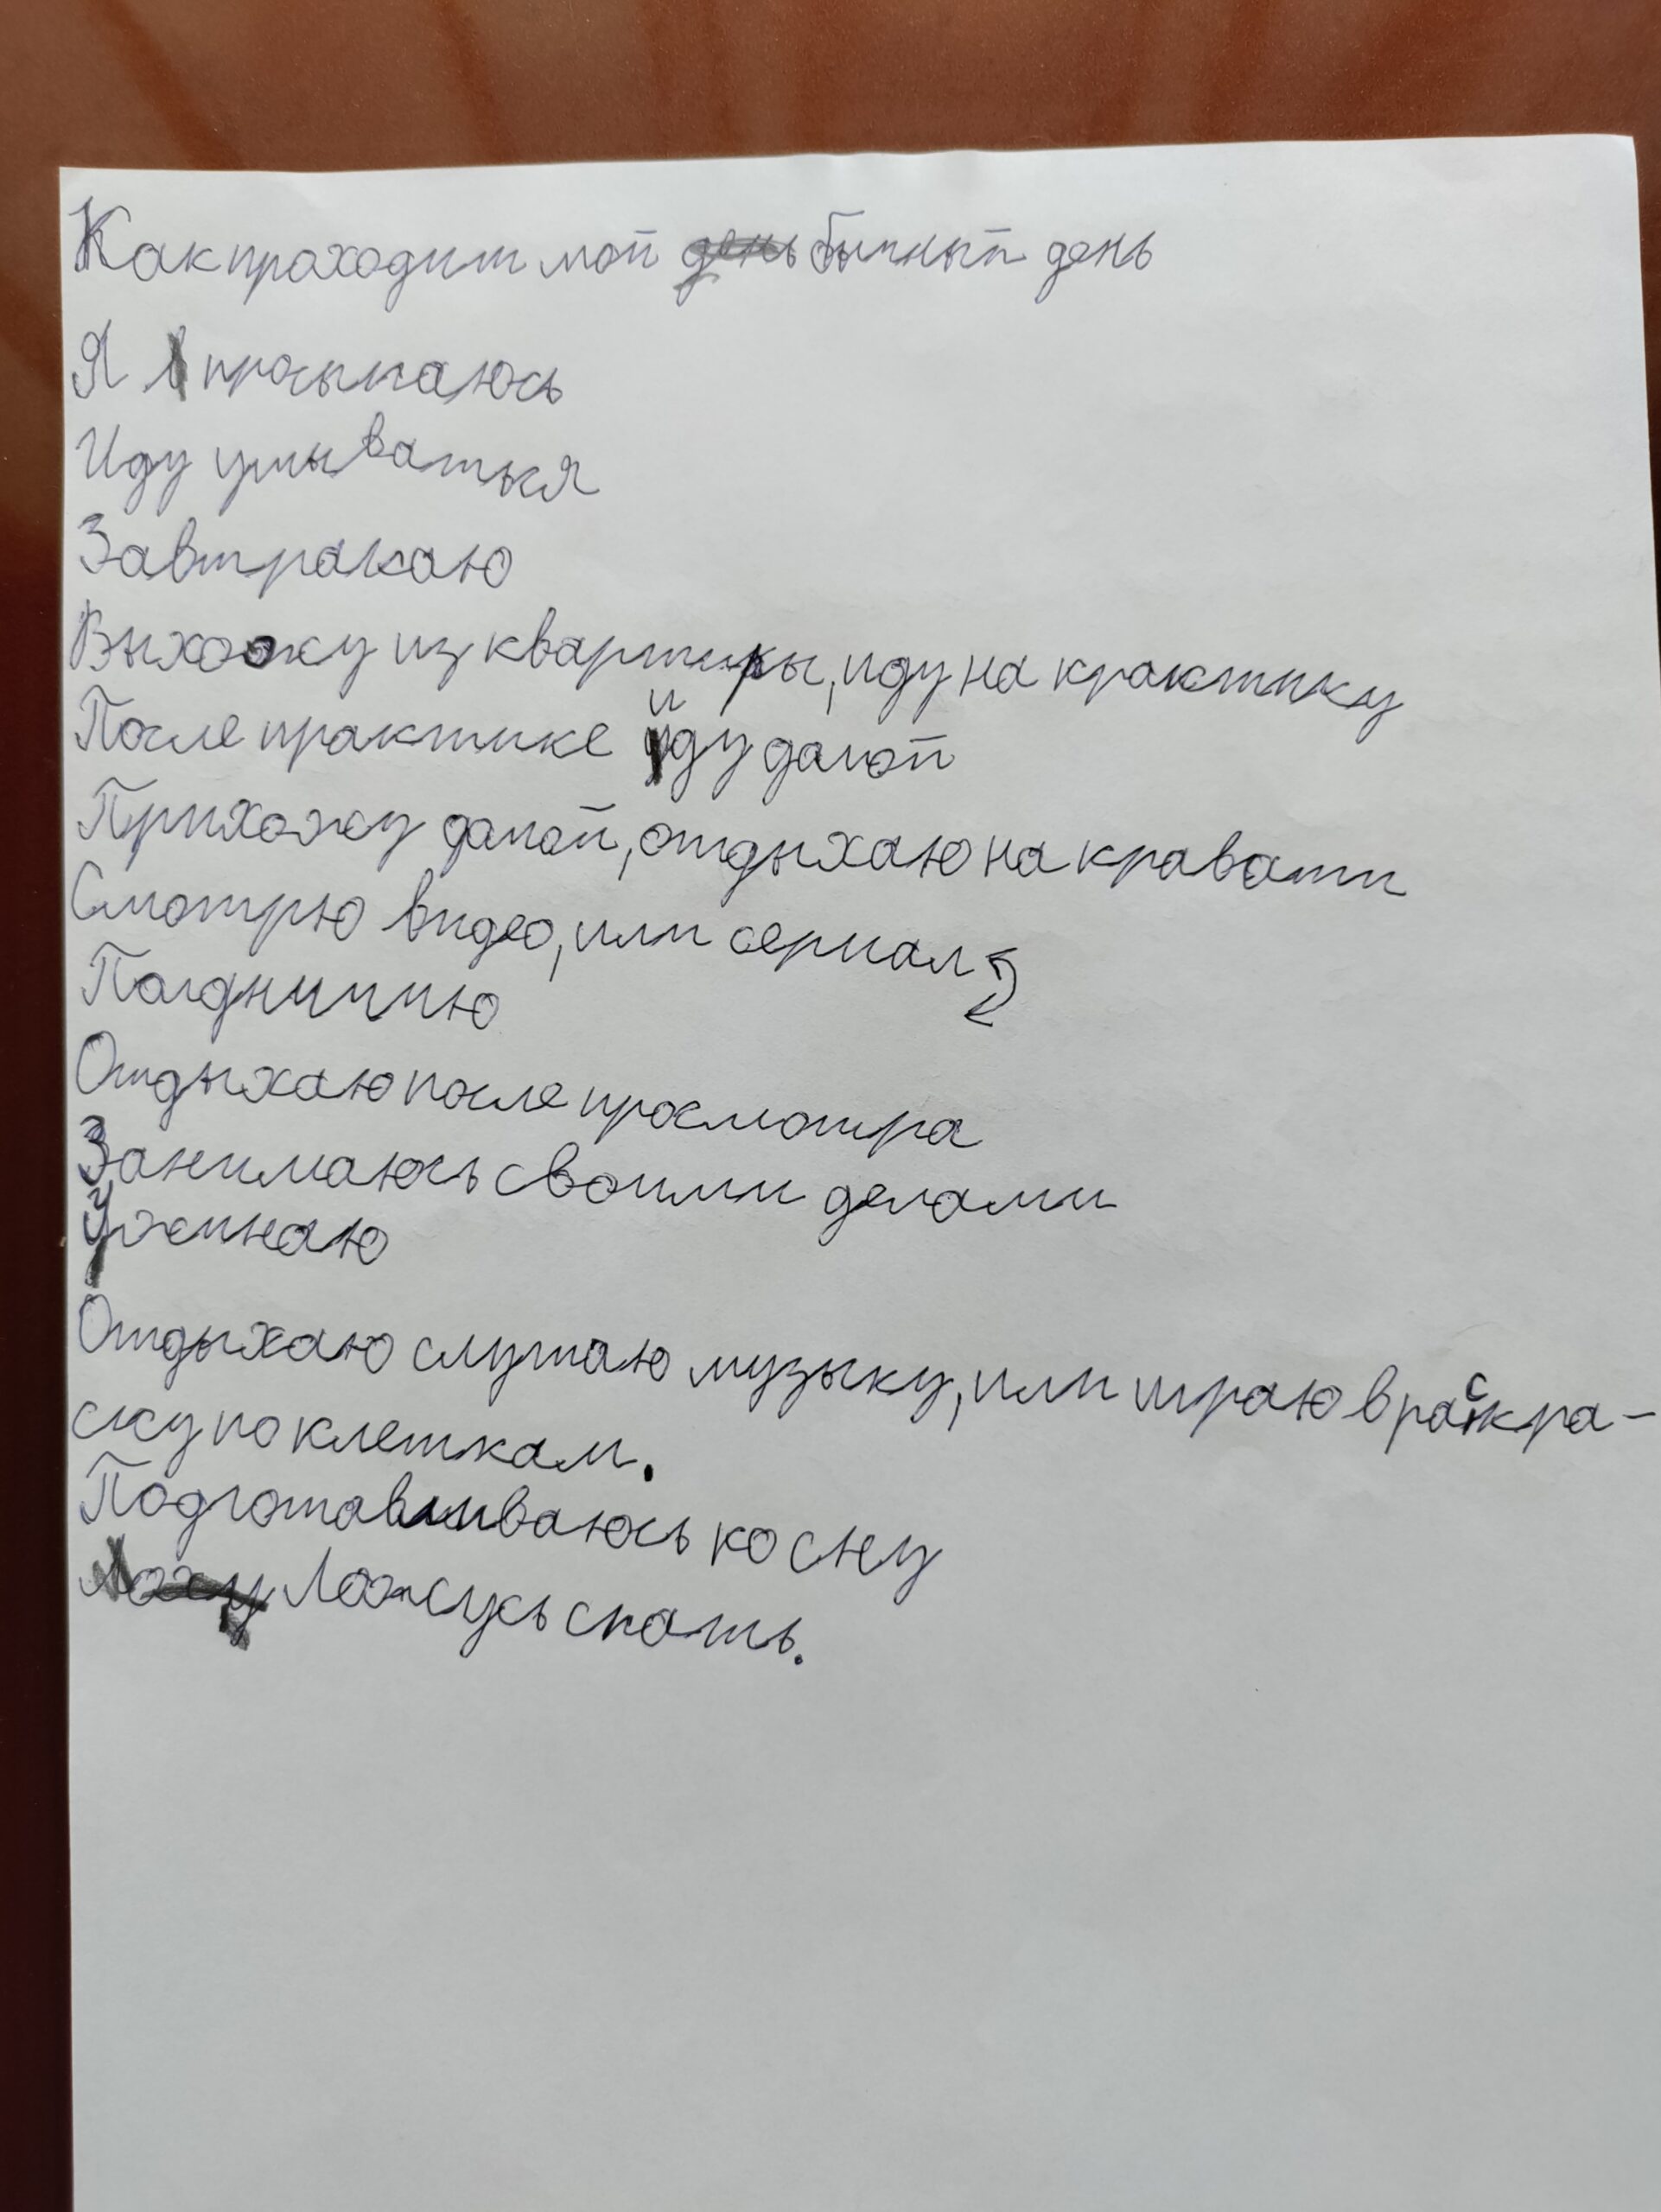 Как праходит мой день бычный день
Я просыпаюсь
Иду умыватькя
Завтракаю
Выхожу из квартиры, иду на крактику
После практике йду дамой
Прихожу дамой, отдыхаю на кравати
Смотрю видео, или сериал
Отдыхаю после просмотра
Занимаюсь своими делами
Ужинаю
Отдыхаю слушаю музыку, или играю в раскра-
ску по клеткам.
Подготавливаюсь ко сну
Ложусь спать.